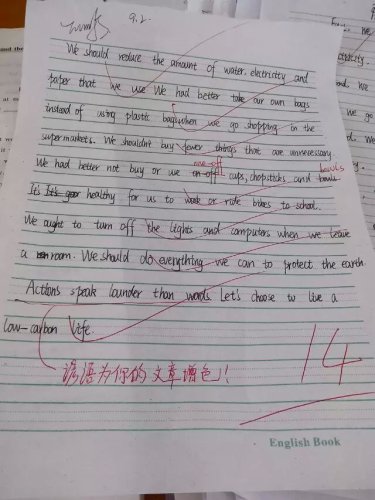 9.2.
We should reduce the amount of water, electricity and
paper that we use We had better take our own bags
instead of using plastic bags when we go shopping in the
supermarkets. We shouldn't buy fewer things that are unnecessary
one-off bowls
We had better not buy or use on-off cups, chopsticks and bowls
It's It's good healthy for us to walk or ride bikes to school.
We ought to turn off the lights and computers when we leave
a room. We should do everything we can to protect the earth
Actions speak lounder than words. Let's choose to live a
low-carbon life.
谚语为你的文章增色!
14
English Book